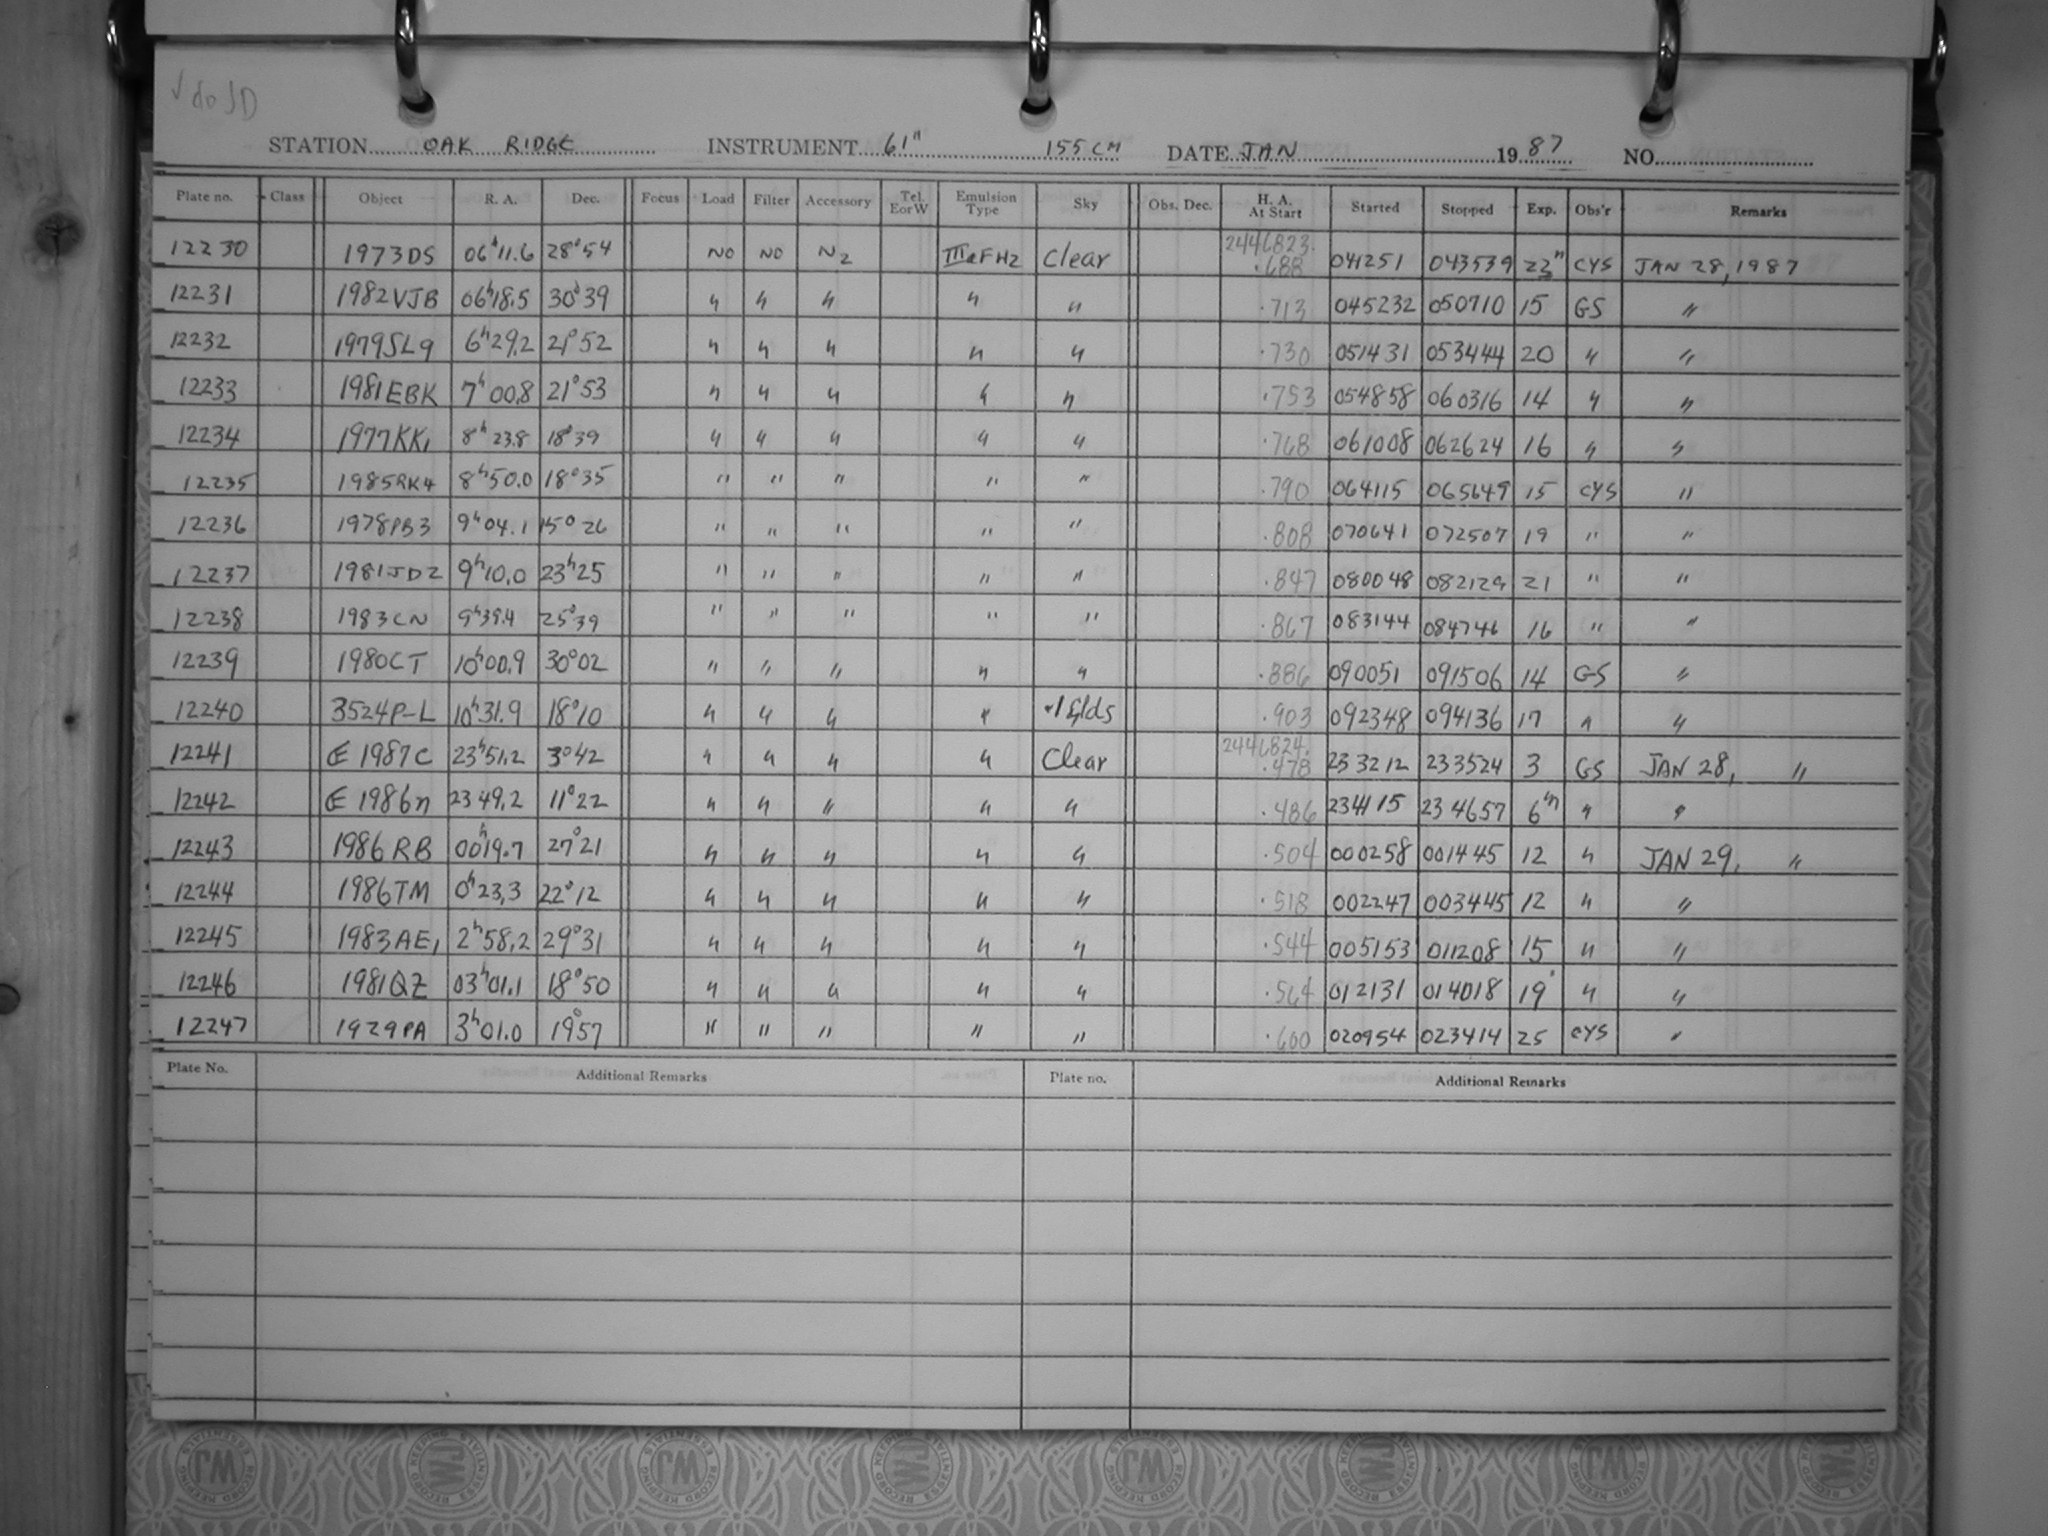 √ do JD
STATION OAK RIDGE INSTRUMENT 61" 155 CM DATE JAN 1987 NO.
Plate no. Class Object R. A. Dec. Focus Load Filter Accessory Tel. E or W Emulsion Type Sky Obs. Dec. H. A. At Start Started Stopped Exp. Obs'r Remarks
12230 1973DS 06ʰ11.6 28°54 NO NO N2 IIIaFH2 Clear 2446823. .688 041251 043539 23ᵐ CYS JAN 28, 1987
12231 1982VJB 06ʰ18.5 30°39 " " " " " .713 045232 050710 15 GS "
12232 1979SL9 6ʰ29.2 21°52 " " " " " .730 051431 053444 20 " "
12233 1981EBK 7ʰ00.8 21°53 " " " " " .753 054858 060316 14 " "
12234 1977KK1 8ʰ23.8 18°39 " " " " " .768 061008 062624 16 " "
12235 1985RK4 8ʰ50.0 18°35 " " " " " .790 064115 065649 15 CYS "
12236 1978PB3 9ʰ04.1 15°26 " " " " " .808 070641 072507 19 " "
12237 1981JDZ 9ʰ10.0 23ʰ25 " " " " " .847 080048 082129 21 " "
12238 1983CN 9ʰ39.4 25°39 " " " " " .867 083144 084746 16 " "
12239 1980CT 10ʰ00.9 30°02 " " " " " .886 090051 091506 14 GS "
12240 3524P-L 10ʰ31.9 18°10 " " " " .903 092348 094136 17 " "
12241 1987C 23ʰ51.2 3°42 " " " " Clear 2446824. .478 233212 233524 3 GS JAN 28, "
12242 1986n 23 49.2 11°22 " " " " " .486 234115 234657 6ᵐ " "
12243 1986RB 00ʰ19.7 27°21 " " " " " .504 000258 001445 12 " JAN 29, "
12244 1986TM 0ʰ23.3 22°12 " " " " " .518 002247 003445 12 " "
12245 1983AE1 2ʰ58.2 29°31 " " " " " .544 005153 011208 15 " "
12246 1981QZ 03ʰ01.1 18°50 " " " " " .564 012131 014018 19 " "
12247 1929PA 3ʰ01.0 19°57 " " " " " .600 020954 023414 25 CYS "
Plate No. Additional Remarks Plate no. Additional Remarks